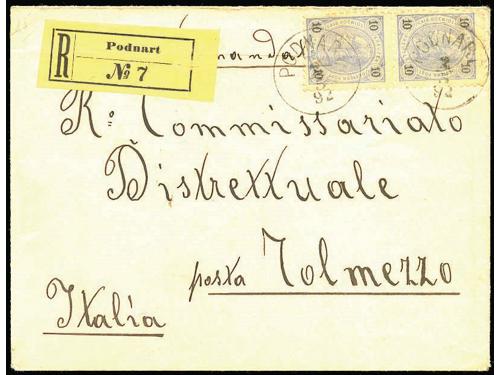 R
Podnart
№ 7
10 10 10 10
10 10 10 10
PODNART
3
92
PODNART
3
92
R: Commissariato
Distrettuale
posta Tolmezzo
Italia